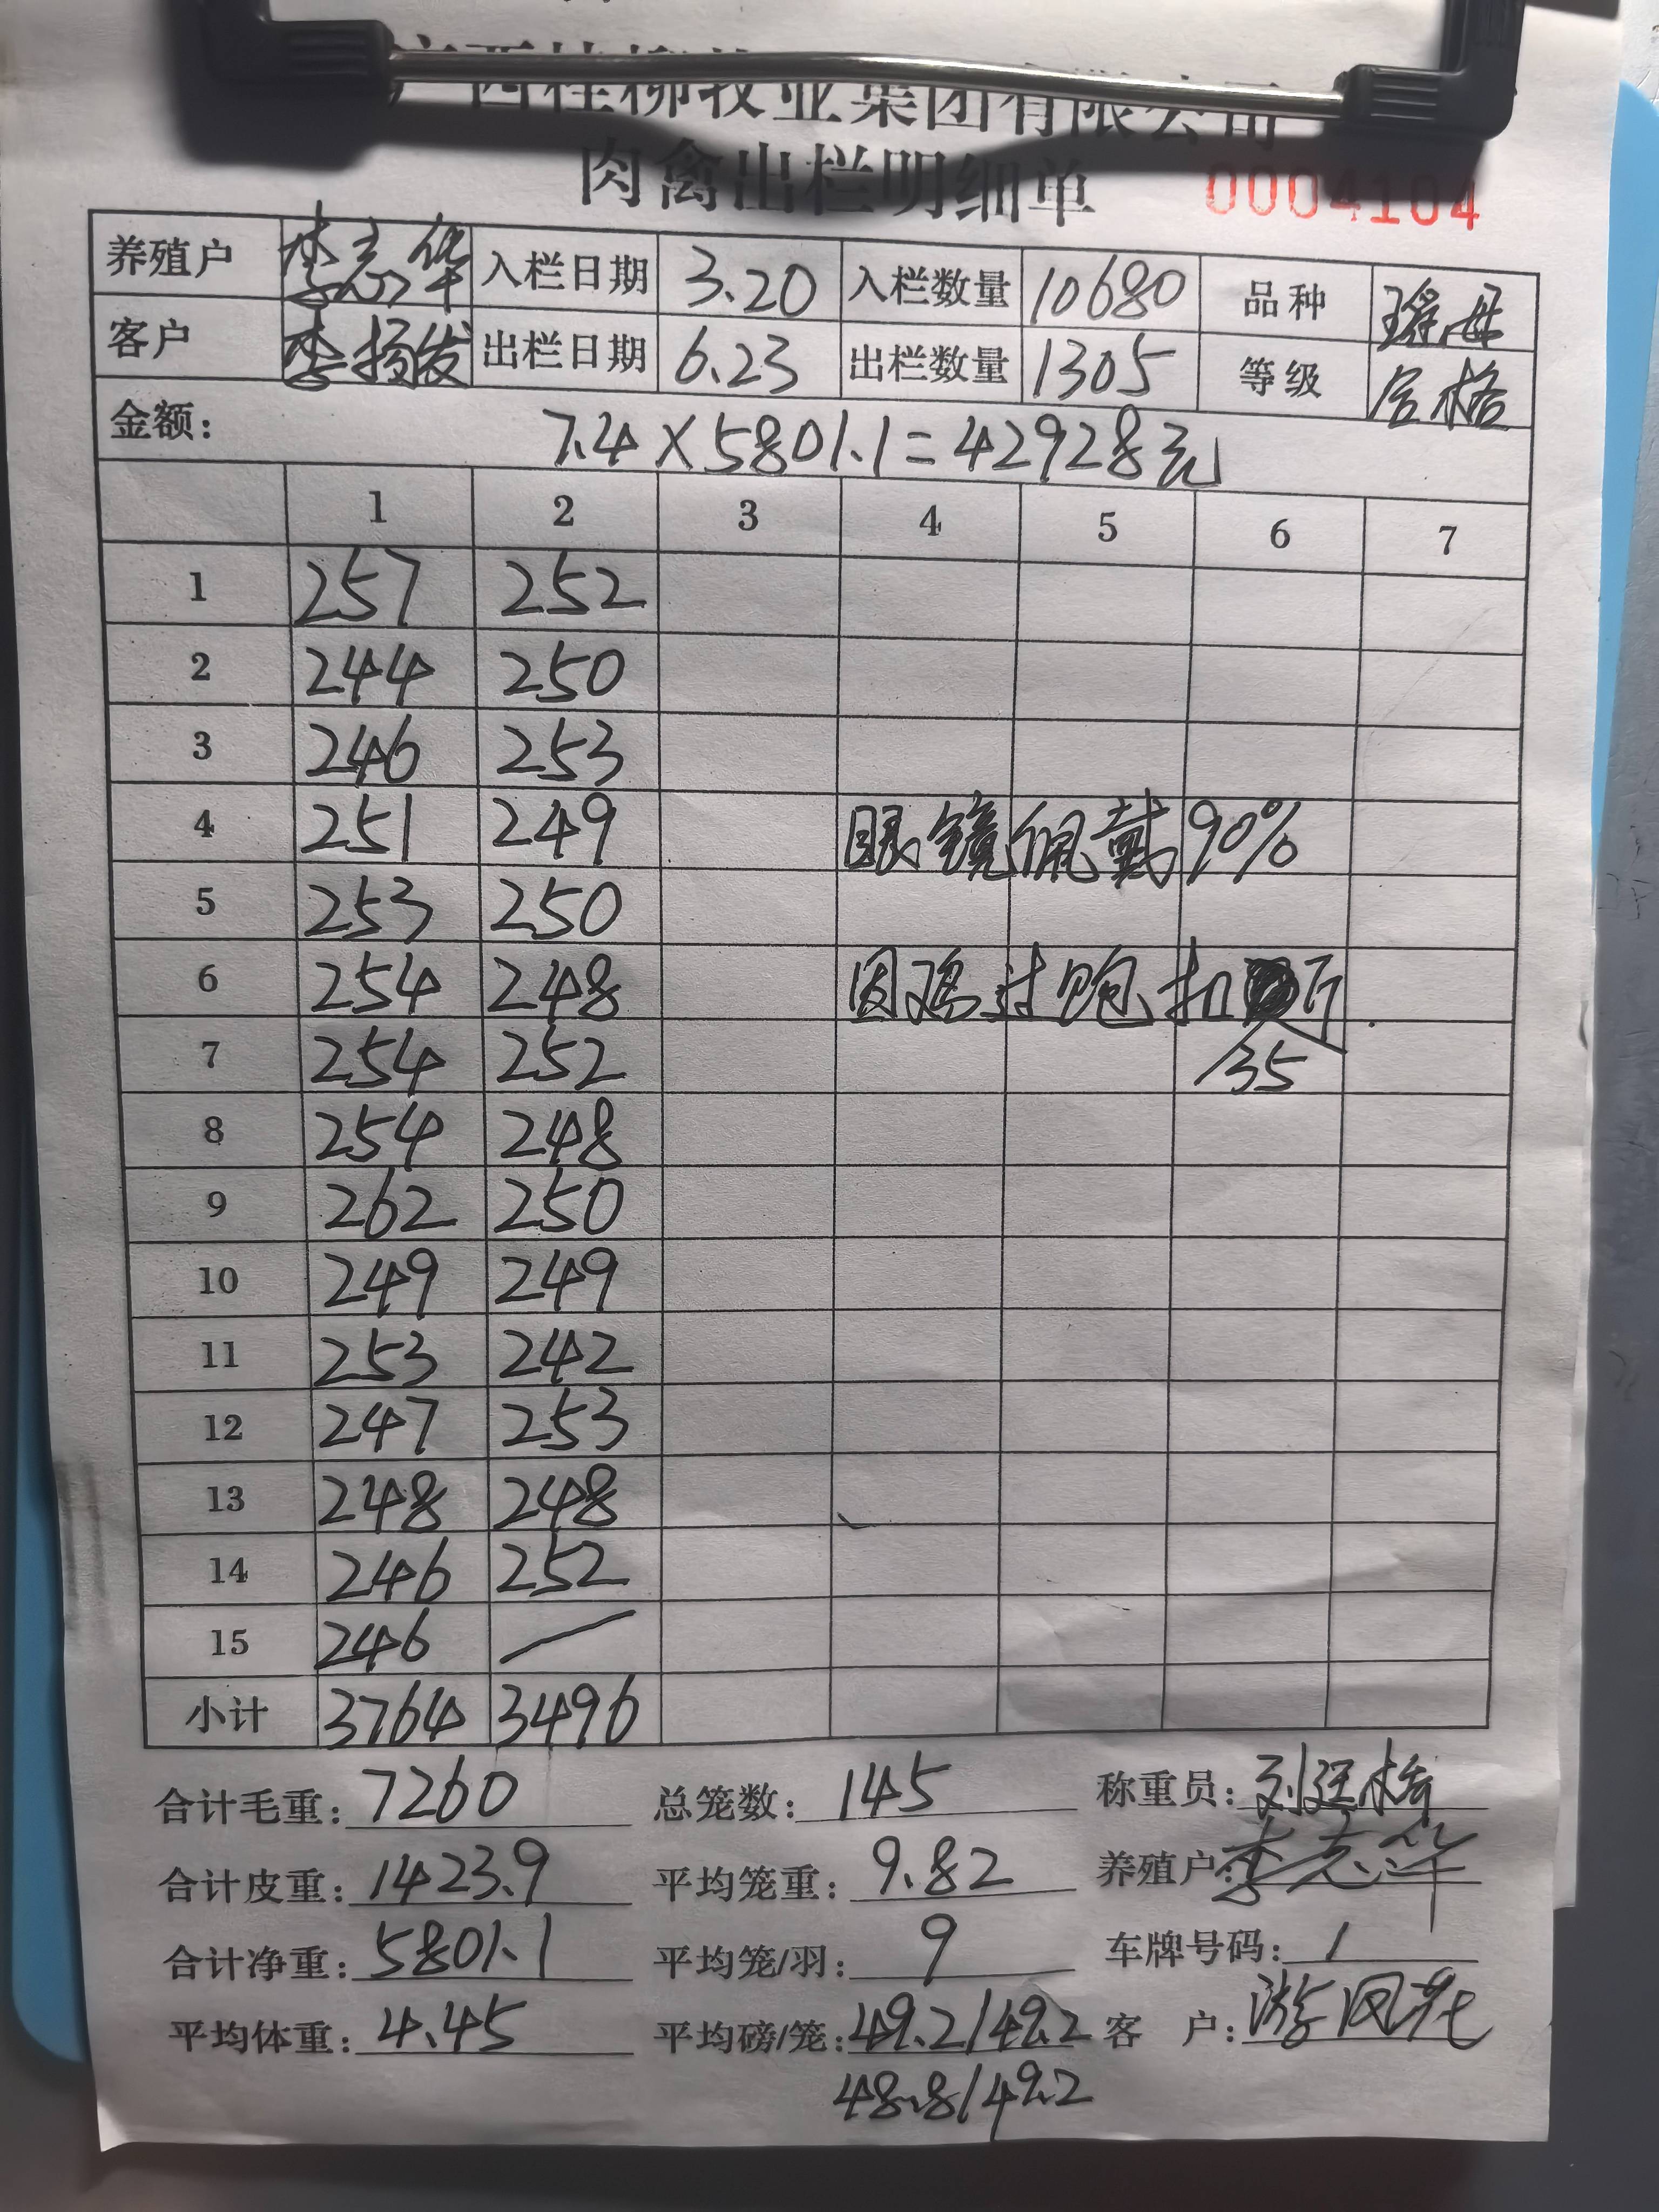 广西桂柳牧业集团有限公司
肉禽出栏明细单 0004104
养殖户 李志华 入栏日期 3.20 入栏数量 10680 品种 瑶母
客户 李扬发 出栏日期 6.23 出栏数量 1305 等级 合格
金额: 7.4×5801.1=42928元
1 2 3 4 5 6 7
1 257 252
2 244 250
3 246 253
4 251 249 眼镜佩戴90%
5 253 250
6 254 248 因鸡过饱扣斤.
7 254 252 35
8 254 248
9 262 250
10 249 249
11 253 242
12 247 253
13 248 248
14 246 252
15 246 /
小计 3764 3496
合计毛重: 7260 总笼数: 145 称重员:
合计皮重: 1423.9 平均笼重: 9.82 养殖户: 李志华
合计净重: 5801.1 平均笼/羽: 9 车牌号码: /
平均体重: 4.45 平均磅/笼: 49.2/49.2 客 户: 游凤花
48.8/49.2